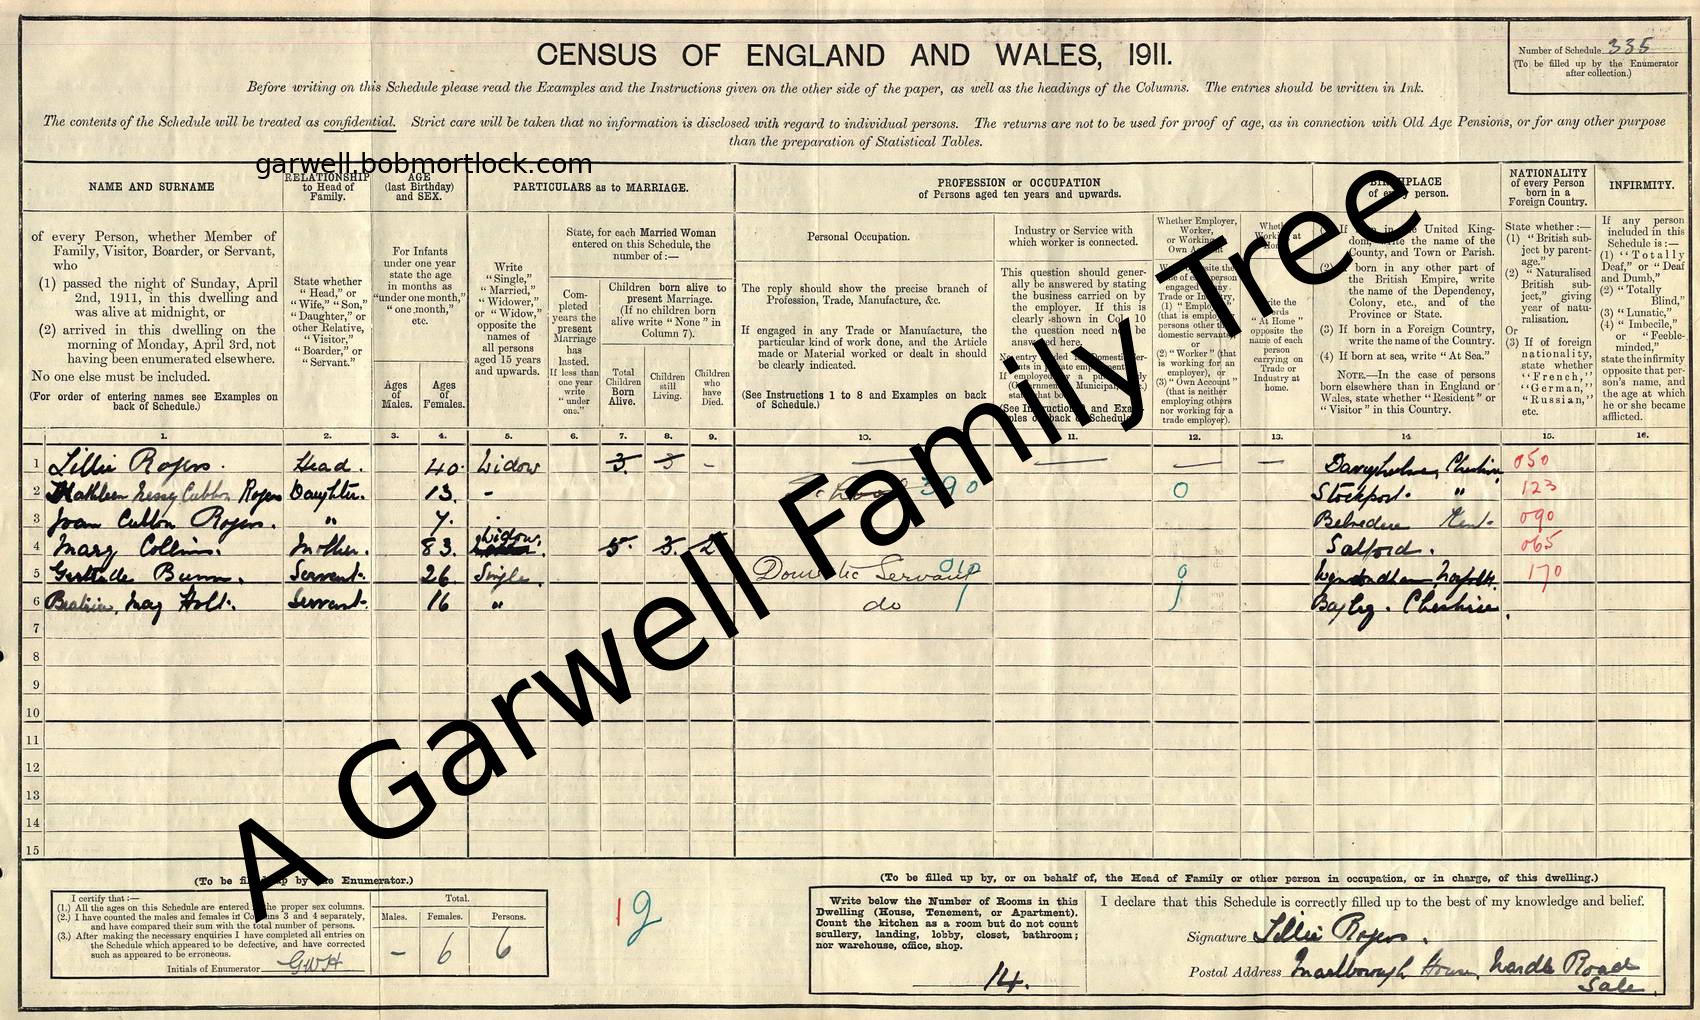 CENSUS OF ENGLAND AND WALES, 1911.
Number of Schedule 335
(To be filled up by the Enumerator
after collection.)
Before writing on this Schedule please read the Examples and the Instructions given on the other side of the paper, as well as the headings of the Columns. The entries should be written in Ink.
The contents of the Schedule will be treated as confidential. Strict care will be taken that no information is disclosed with regard to individual persons. The returns are not to be used for proof of age, as in connection with Old Age Pensions, or for any other purpose
than the preparation of Statistical Tables.
garwell.bobmortlock.com
A Garwell Family Tree
NAME AND SURNAME
of every Person, whether Member of
Family, Visitor, Boarder, or Servant,
who
(1) passed the night of Sunday, April
2nd, 1911, in this dwelling and
was alive at midnight, or
(2) arrived in this dwelling on the
morning of Monday, April 3rd, not
having been enumerated elsewhere.
No one else must be included.
(For order of entering names see Examples on
back of Schedule.)
RELATIONSHIP
to Head of
Family.
State whether
"Head," or
"Wife," "Son,"
"Daughter," or
other Relative,
"Visitor,"
"Boarder," or
"Servant."
AGE
(last Birthday)
and SEX.
For Infants
under one year
state the age
in months as
"under one month,"
"one month,"
etc.
Ages
of
Males.
Ages
of
Females.
PARTICULARS as to MARRIAGE.
Write
"Single,"
"Married,"
"Widower,"
or "Widow,"
opposite the
names of
all persons
aged 15 years
and upwards.
State, for each Married Woman
entered on this Schedule, the
number of:—
Completed
years the
present
Marriage
has
lasted.
If less than
one year
write
"under
one."
Children born alive to
present Marriage.
(If no children born
alive write "None" in
Column 7).
Total
Children
Born
Alive.
Children
still
Living.
Children
who
have
Died.
PROFESSION or OCCUPATION
of Persons aged ten years and upwards.
Personal Occupation.
The reply should show the precise branch of
Profession, Trade, Manufacture, &c.
If engaged in any Trade or Manufacture, the
particular kind of work done, and the Article
made or Material worked or dealt in should
be clearly indicated.
(See Instructions 1 to 8 and Examples on back
of Schedule.)
Industry or Service with
which worker is connected.
This question should gener-
ally be answered by stating
the business carried on by
the employer. If this is
clearly shown in Col. 10
the question need not be
answered here.
Whether Employer,
Worker,
or Working on
Own Account
BIRTHPLACE
of every person.
(3) If born in a Foreign Country,
write the name of the Country.
(4) If born at sea, write "At Sea."
NOTE.—In the case of persons
born elsewhere than in England or
Wales, state whether "Resident" or
"Visitor" in this Country.
NATIONALITY
of every Person
born in a
Foreign Country.
State whether:—
(1) "British sub-
ject by parent-
age."
(2) "Naturalised
British sub-
ject," giving
year of natu-
ralisation.
Or
(3) If of foreign
nationality,
state whether
"French,"
"German,"
"Russian,"
etc.
INFIRMITY.
If any person
included in this
Schedule is:—
(1) "Totally
Deaf," or "Deaf
and Dumb,"
(2) "Totally
Blind,"
(3) "Lunatic,"
(4) "Imbecile,"
or "Feeble-
minded,"
state the infirmity
opposite that per-
son's name, and
the age at which
he or she became
afflicted.
1. 2. 3. 4. 5. 6. 7. 8. 9. 10. 11. 12. 13. 14 15. 16.
1 Lillie Rogers. Head. 40. Widow 3. 3 - Cheshire 050
2 Kathleen Cubbon Rogers Daughter. 13. - School 390 0 Stockport. " 123
3 Joan Cubbon Rogers. " 7. Belvedere Kent 090
4 Mary Collins. Mother. 83. Widow. 5. 3. 2 Salford. 065
5 Gertrude Bunn. Servant. 26 Single. Domestic Servant 010 0 Wymondham Norfolk 170
6 Beatrice May Holt. Servant. 16 " do Cheshire.
7
8
9
10
11
12
13
14
15
(To be filled up by the Enumerator.)
I certify that:—
(1.) All the ages on this Schedule are entered in the proper sex columns.
(2.) I have counted the males and females in Columns 3 and 4 separately,
and have compared their sum with the total number of persons.
(3.) After making the necessary enquiries I have completed all entries on
the Schedule which appeared to be defective, and have corrected
such as appeared to be erroneous.
Initials of Enumerator GWH
Total.
Males. Females. Persons.
- 6 6
(To be filled up by, or on behalf of, the Head of Family or other person in occupation, or in charge, of this dwelling.)
Write below the Number of Rooms in this
Dwelling (House, Tenement, or Apartment).
Count the kitchen as a room but do not count
scullery, landing, lobby, closet, bathroom;
nor warehouse, office, shop.
14.
I declare that this Schedule is correctly filled up to the best of my knowledge and belief.
Signature Lillie Rogers.
Postal Address Marlborough House, Wardle Road
Sale.